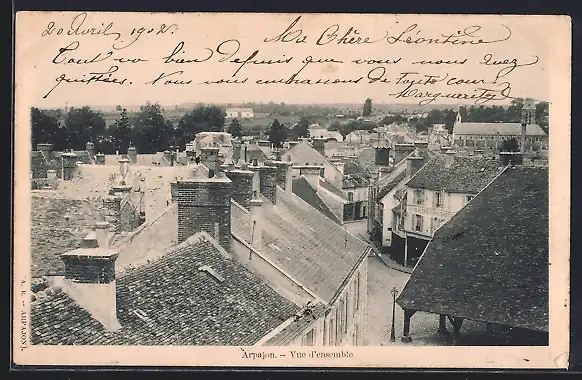 20 Avril, 1902. Ma Chère Léontine
Tout va bien depuis que vous nous avez
quittées. Nous vous embrassons de tout cœur.
Marguerite
A. B. -- ARPAJON.
Arpajon. -- Vue d'ensemble